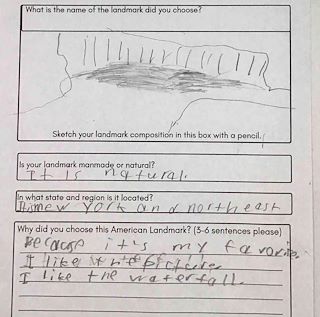 What is the name of the landmark did you choose?
Sketch your landmark composition in this box with a pencil.
Is your landmark manmade or natural?
It is natural.
In what state and region is it located?
new york and northeast
Why did you choose this American Landmark? (3-6 sentences please)
Because it's my favorite.
I like the picture
I like the waterfall.